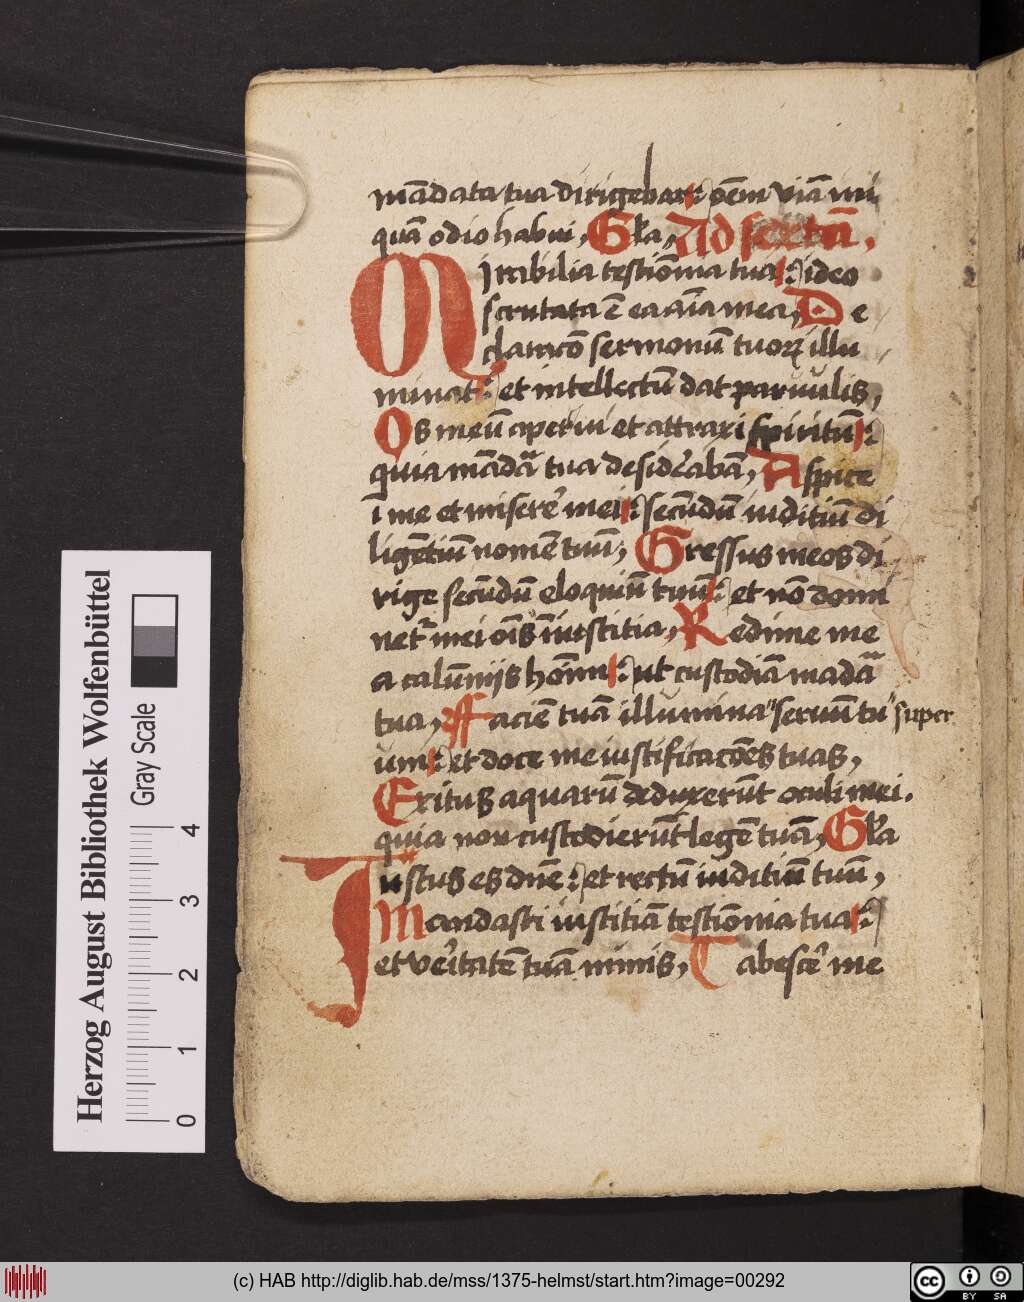 mādata tua dirigebar: oēm viā ini
quā odio habui, Gła, Ad sextam,
Mirabilia testiōnia tua: ideo
scrutata ē ea aīa mea, De
claracō sermonū tuoꝝ illu
minat: et intellectū dat parvulis,
Os meū aperui et attraxi spiritū:
quia mādā tua desid'abā, Aspice
ī me et miserē mei: secūdū iuditiū di
ligētiū nomē tuū, Gressus meos di
rige secūdū eloquiū tuū: et nō domi
net' mei oīs īiustitia, Redime me
a calūniis hoīm: ut custodiā mādā
tua, Faciē tuā illumina" servū tū "super
um: et doce me iustificacōes tuas,
Exitus aquarū deduxerūt oculi mei.
quia non custodierūt legē tuā, Gła
Iustus es dn̄e: et rectū iuditiū tuū,
Mandasti iustitiā testiōnia tua:
et v'itatē tuā nimis, Tabescē me
Herzog August Bibliothek Wolfenbüttel
Gray Scale
0 1 2 3 4
(c) HAB http://diglib.hab.de/mss/1375-helmst/start.htm?image=00292
cc BY SA